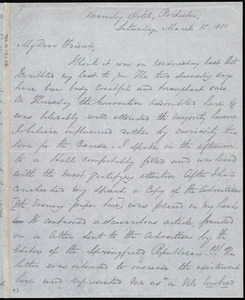 Waverley Hotel, Rochester,
Saturday, March 15. 1851
My Dear Friend,
I think it was on Wednesday last that
I my last to you. The two succeeding days
have been busy, eventful and triumphant ones.
On Thursday the Convention assembled here &
was tolerably well attended the majority however
I believe influenced rather by curiosity than
love for the Cause. I spoke in the afternoon
to a Hall comfortably filled and was heard
with the most gratifying attention. After I had
concluded my speech a Copy of the Advertiser
(the evening paper here) was placed in my hands
& it contained a article, founded
on a letter sent to the Advertiser by the
Editor of the Springfield Republican !!! The
letter was intended to increase the excitement
here and represented me as a vile